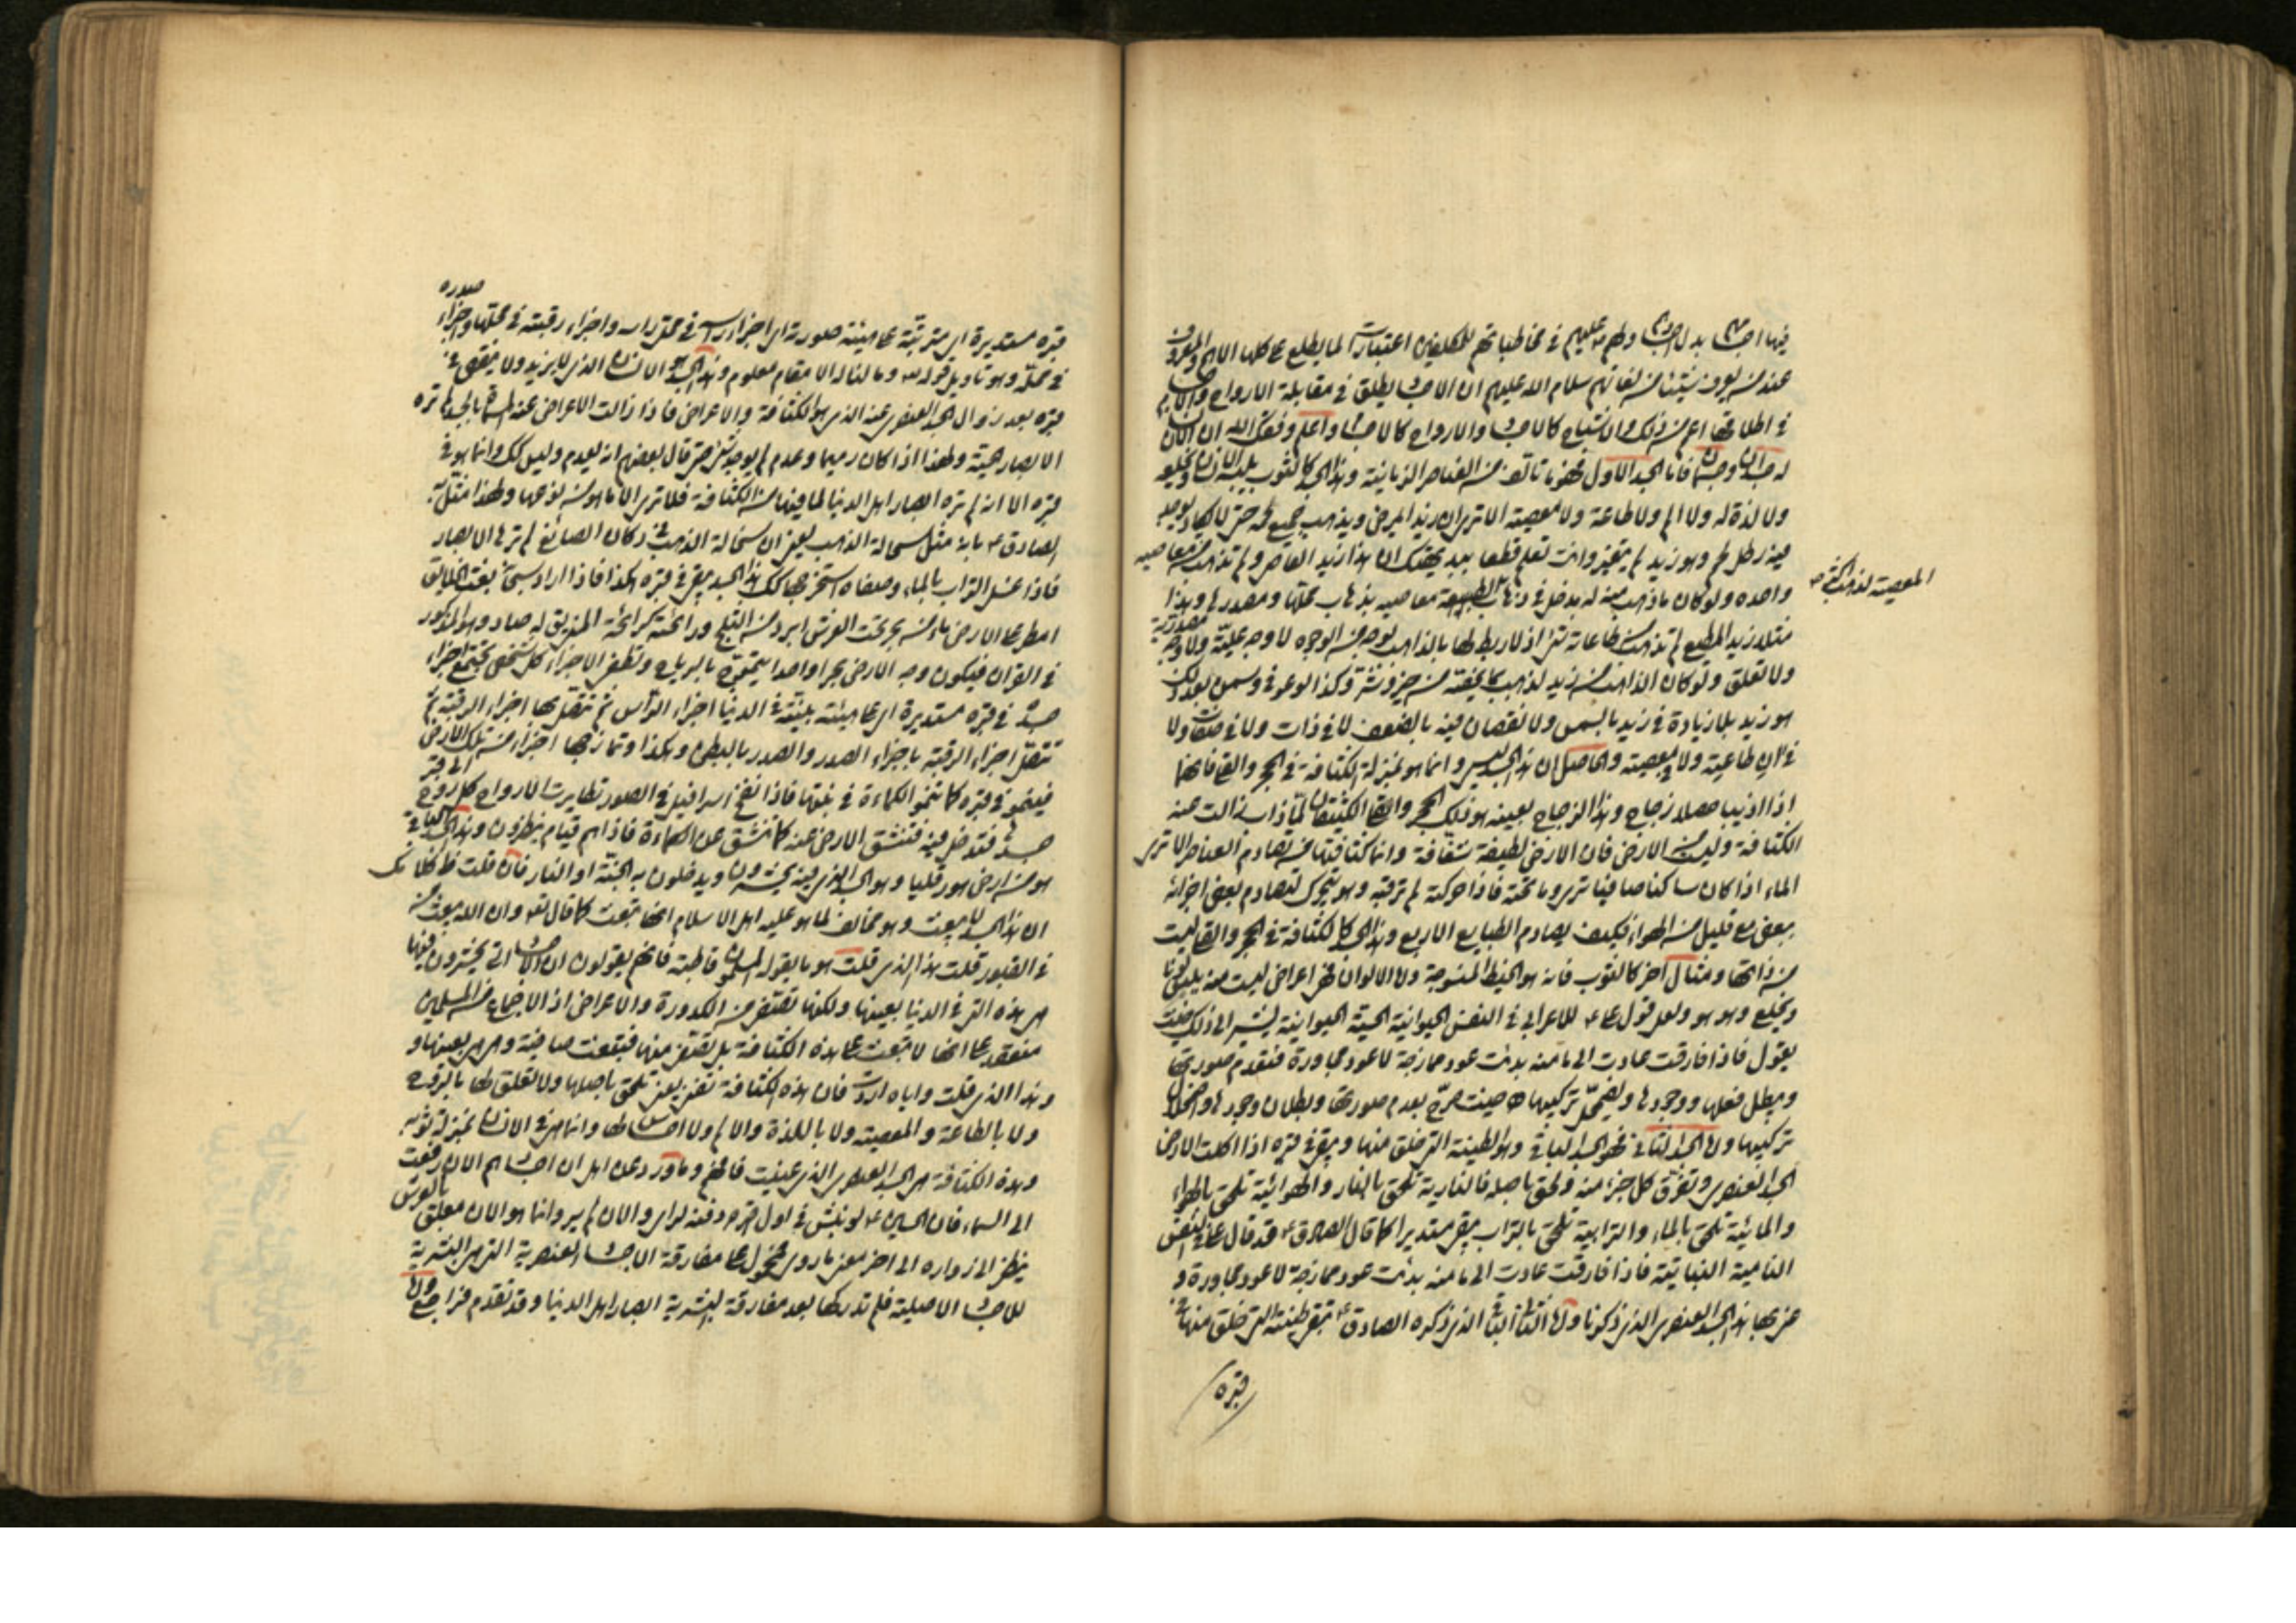 فيها اجسامهم بدل اجسادهم ولهم ع عليهم في مخاطباتهم للمكلفين اعتبارات لما يطلع على كلها الا هم والمعروف
عند من يعرف شيئا من لغاتهم سلام الله عليهم ان الاجساد يطلق في مقابلة الارواح والاجسام
في اطلاقها اعم من ذلك والاشباح كالاجساد والارواح كالاجساد واعلم وفقك الله ان الانسان
له جسدان وجسمان فاما الجسد الاول فهو ما تألف من العناصر الزمانية وهذا الجسد كالثوب يلبسه الانسان ويخلعه
ولا لذة له ولا الم ولا طاعة ولا معصية الا ترى ان زيدا يمرض ويذهب جميع لحمه حتى لا يكاد يوجد
فيه رطل لحم وهو زيد لم يتغير وانت تعلم قطعا ببديهتك ان هذا زيد العاصي ولم تذهب من معاصيه
واحدة ولو كان ما ذهب منه له مدخل في المعصية لذهب اكثر معاصيه بذهاب محلها ومصدرها وهذا
مثلا زيد المطيع لم تذهب من طاعاته شيء اذ لا ربط لها بالذاهب بوجه من الوجوه لا وجه علية ولا وجه مصدرية
ولا تعلق ولو كان الذاهب من زيد لذهب بما يخصه من خير وشر وكذا لو عفن وسمن بعد ذلك
هو زيد بلا زيادة في زيد بالسمن ولا نقصان فيه بالضعف لا في ذات ولا في صفات ولا
في طاعة ولا معصية والحاصل ان هذا الجسد ليس وانما هو بمنزلة الكثافة في الحجر والقلى فانهما
اذا اذيبا حصلا زجاج وهذا الزجاج بعينه هو ذلك الحجر والقلى الكثيفان لما ذاب زالت عنه
الكثافة وليست من الارض فان الارض لطيفة شفافة وانما كثافتها من تصادم العناصر الا ترى
الماء اذا كان ساكنا صافيا ترى ما تحته فاذا حركته لم تر فيه وهو يتحرك لتصادم بعض اجزائه
ببعض مع قليل من الهواء فكيف بصادم الطبايع الاربع وهذا الجسد كالكثافة في الحجر والقلى ليست
من ذاتها ومثال اخر كالثوب فانه هو الخيوط المنسوجة واما الالوان فهي اعراض ليست منه يلبس لونا
ويخلع وهو هو ولعل قول علي ع للاعرابي في النفس الحيوانية الحسية الحيوانية يشير الى ذلك حيث
يقول فاذا فارقت عادت الى ما منه بدئت عود ممازجة لا عود مجاورة فتعدم صورتها
ويبطل فعلها ووجودها ويضمحل تركيبها ه حيث صرح بعدم صورتها وبطلان وجودها واضمحلال
تركيبها واما الجسد الثاني فهو الجسد الباقي وهو الطينة التي خلق منها ويبقى في قبره اذا اكلت الارض
الجسد العنصري وتفرق كل جزء منه ولحق باصله فالنارية تلحق بالنار والهوائية تلحق بالهواء
والمائية تلحق بالماء والترابية تلحق بالتراب يبقى مستديرا كما قال الصادق ع وقد قال علي ع في النفس
النامية النباتية فاذا فارقت عادت الى ما منه بدئت عود ممازجة لا عود مجاورة و
عنى بها هذا الجسد العنصري الذي ذكرنا واما الثاني الباقي الذي ذكره الصادق ع تبقى طينته التي خلق منها في
قبره
المعصية لذهب اكثر
قبره مستديرة اي مترتبة على هيئة صورته اي اجزاء راسه في محل راسه واجزاء رقبته في محلها واجزاء صدره
في محله وهو تاويل قوله تع وما لنا الا له مقام معلوم وهذا الجسد هو الانسان الذي لا يزيد ولا ينقص في
قبره بعد زوال الجسد العنصري عنه الذي هو الكثافة والاعراض فاذا زالت الاعراض عنه المسماة بالجسد لم تره
الابصار الحسية ولهذا اذا كان رميما وعدم لم يوجد شيء حتى قال بعضهم انه يعدم وليس كك وانما هو في
قبره الا انه لم تره ابصار اهل الدنيا لما فيها من الكثافة فلا ترى الا ما هو من نوعها ولهذا مثل به
الصادق ع بانه مثل سحالة الذهب يعني ان سحالة الذهب في دكان الصائغ لم ترها الابصار
فاذا غسل التراب بالماء وصفاه استخرجها كك هذا الجسد يبقى في قبره هكذا فاذا اراد سبحانه بعث الخلايق
امطر على الارض ماء من بحر تحت العرش ابرد من الثلج ورائحته كرائحة المني يق له صاد وهو المذكور
في القران فيكون وجه الارض بحرا واحدا يتموج بالرياح وتصفى الاجزاء كل شخص تجتمع اجزاء
جسده في قبره مستديرة اي على هيئة بنيته في الدنيا اجزاء الراس ثم تتصل بها اجزاء الرقبة ثم
تتصل اجزاء الرقبة باجزاء الصدر والصدر بالبطن وهكذا وتمازجها اجزاء من تلك الارض
فينمو في قبره كما تنمو الكماءة في نبتها فاذا نفخ اسرافيل في الصور تطايرت الارواح كل روح الى قبر
جسدها فتدخل فيه فتنشق الارض عنه كما تنشق عن الكماءة فاذا هم قيام ينظرون وهذا الجسد الباقي
هو من ارض هورقليا وهو الجسد الذي فيه يحشرون ويدخلون به الجنة او النار فان قلت ظاهر كلامك
ان هذا الجسد لا يبعث وهو مخالف لما هو عليه اهل الاسلام انها تبعث كما قال تع وان الله يبعث من
في القبور قلت هذا الذي قلت هو ما يقوله المسلمون قاطبة فانهم يقولون ان الاجساد التي يحشرون فيها
هي هذه التي في الدنيا بعينها ولكنها تصفى من الكدورة والاعراض اذ الاجماع من المسلمين
منعقد على انها لا تبعث على هذه الكثافة بل تصفى منها فتبعث صافية وهي هي بعينها و
هذا الذي قلت واياه اردت فان هذه الكثافة تفنى يعني تلحق باصلها ولا تعلق لها بالروح
ولا بالطاعة والمعصية ولا باللذة والالم ولا احساس لها وانما هي في الانسان بمنزلة ثوبه
وهذه الكثافة هي الجسد العنصري الذي عنيت فافهم وما ورد عن اهل ان اجسادهم الان رفعت
الى السماء فان الحسين ع لو نبش في اول حين دفنه لراي والان لم ير وانما هو الان معلق بالعرش
ينظر الى زواره الى اخر معنى ما روي محمول على مفارقة الاجساد العنصرية التي هي البشرية
للاجساد الاصلية فلم تدركها بعد مفارقة البشرية ابصار اهل الدنيا وقد تقدم فراجع واما